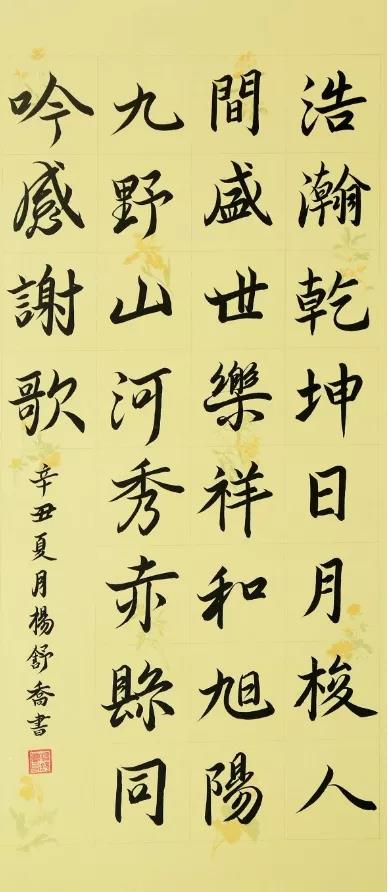 浩瀚乾坤日月梭人
間盛世樂祥和旭陽
九野山河秀赤縣同
吟感謝歌
辛丑夏月楊舒喬書